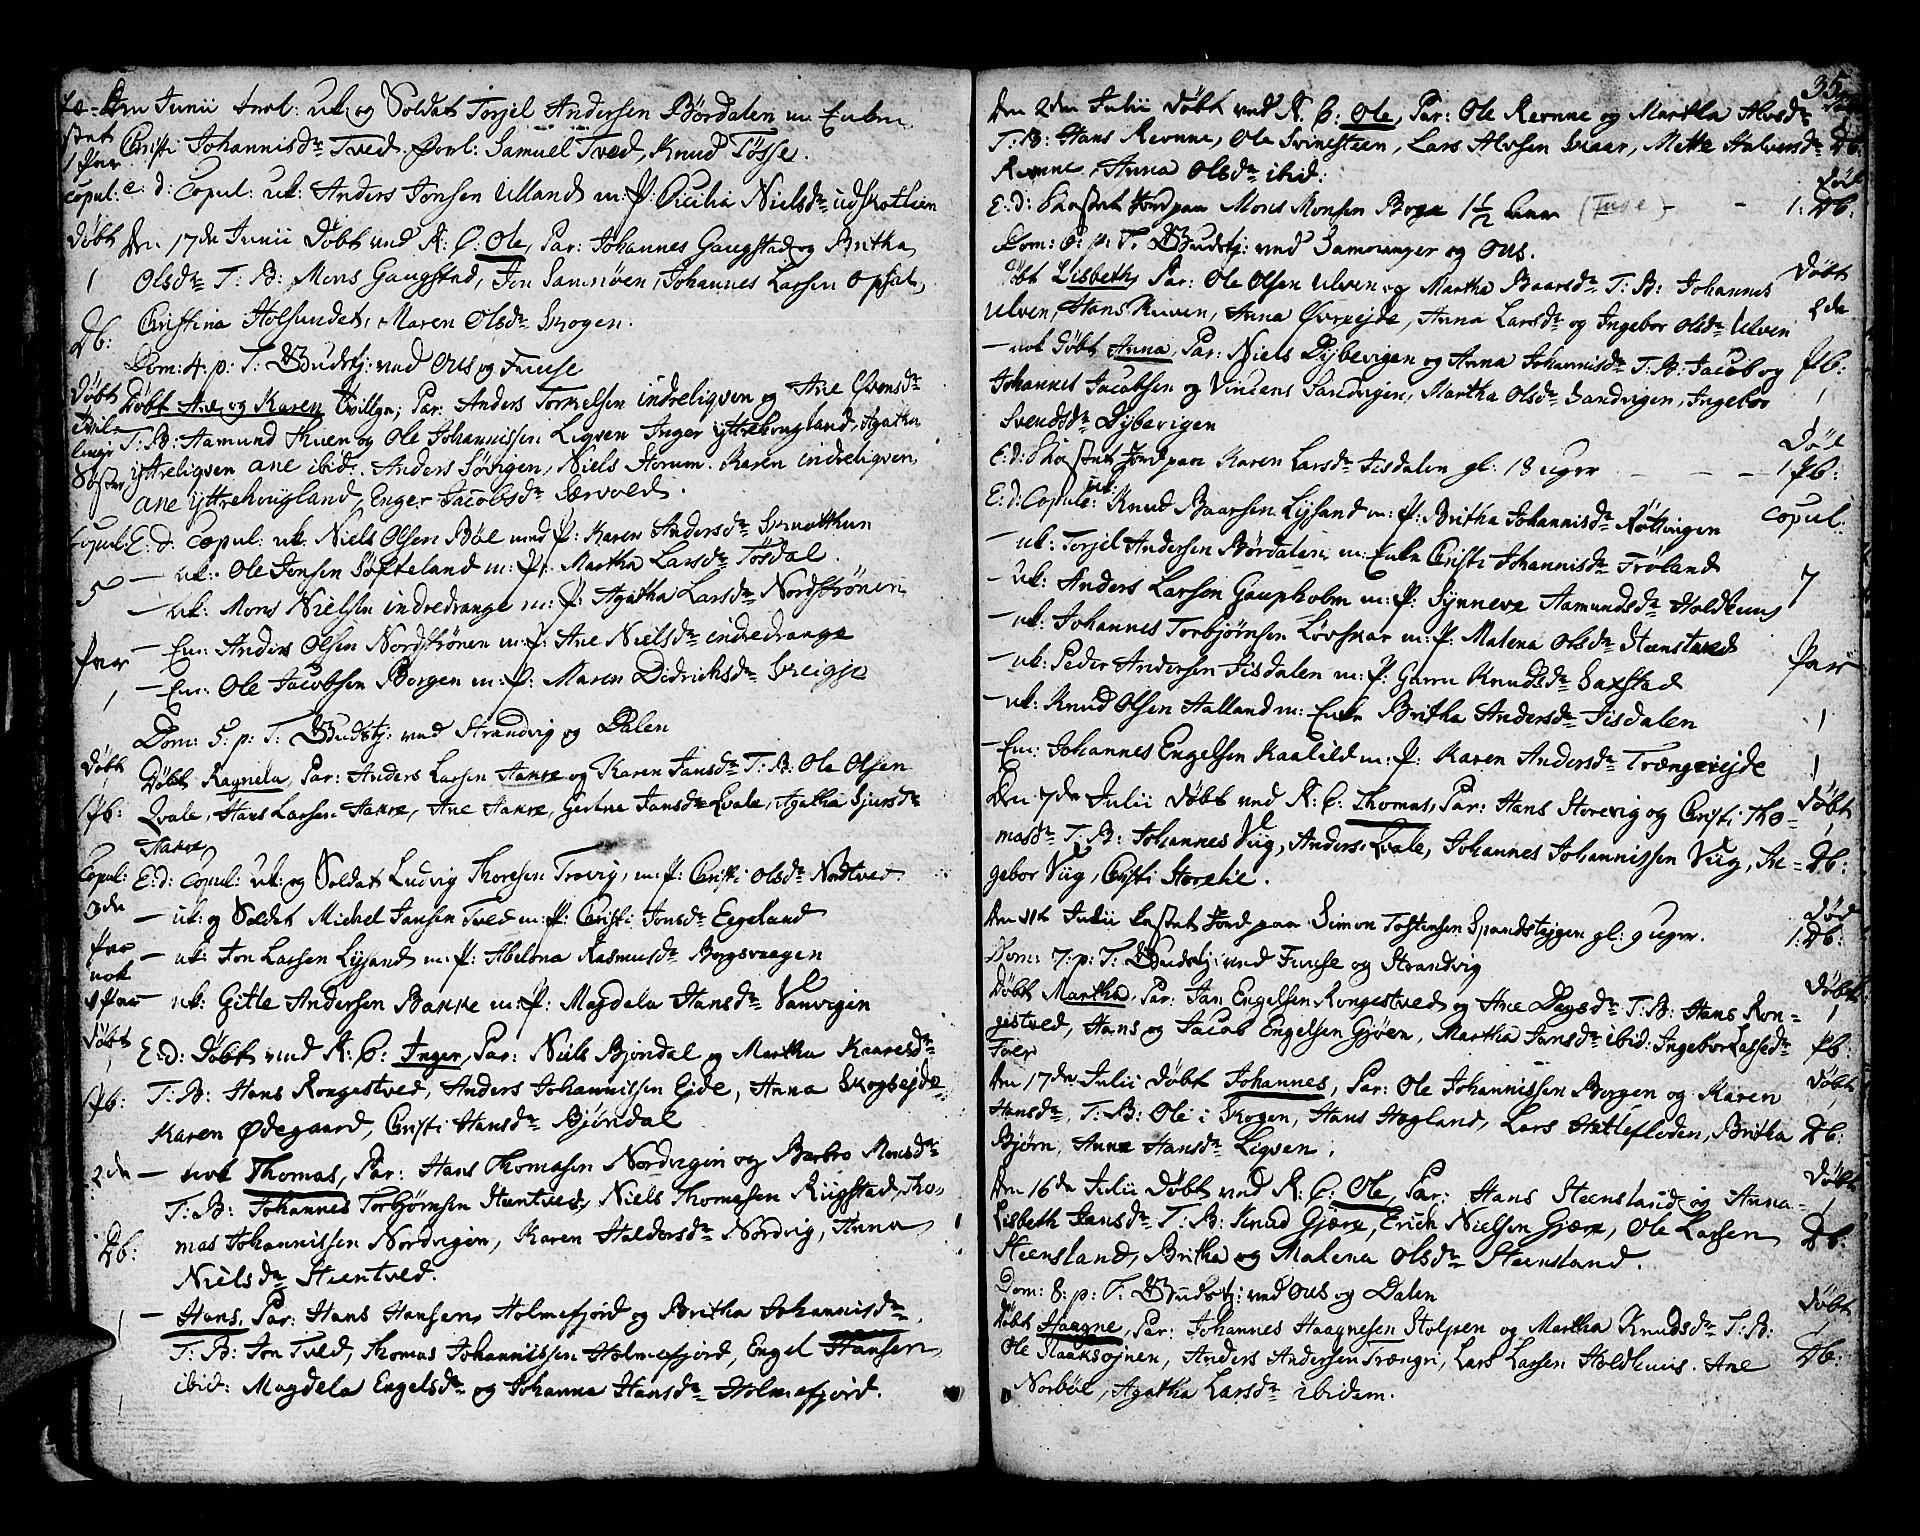 Junii trol: uk: og Soldat Torjel Andersen Bördalen m: Enken
Christi Johannisdr Tved. Forl: Samuel Tved, Knud Tösse.
copul: e: d: Copul: uk: Anders Jonsen Ulland m: P: Cicilia Nielsdr udskotlien
döbt Den 17de Junii Döbt ved K: C: Ole, Par: Johannes Gaugstad og Britha
1 Olsdr T: B: Mons Gaugstad, Jon Samnöen, Johannes Larsen opsal,
Db: Christina Holsundet, Maren Olsdr Skogen.
Dom: 4: p: T: Gudstj: ved Ous og Fuuse
döbt Döbt Ane og Karen Tvillger, Par: Anders Torkelsen indreliqven og Ane Ivensdr
T: B: Aamund Thuen og Ole Johannissen Liqven Inger yttrehougland, Agatha
yttreliqven ane ibid: Anders Sövigen, Niels Storum. Karen indreliqven,
ane yttrehougland, Enger Jacobsdr Særvold.
copul: E: d: Copul: uk: Niels Olsen Böe med P: Karen Andersdr Skrotthun
— uk: Ole Jonsen Söfteland m: P: Martha Larsdr Tösdal.
5 — uk: Mons Nielsen indredrange m: P: Agatha Larsdr Nordströnen
Par — Em: Anders Olsen Nordströnen m: P: Ane Nielsdr indredrange
1 — Em: Ole Jacobsen Borgen m: P: Maren Didrichsdr Skeigje
Dom: 5: p: T: Gudstj: ved Strandvig og Dalen
Döbt Döbt Ragnela, Par: Anders Larsen Haaxe og Karen Jansdr T: B: Ole Olsen
Pb: Qvale, Hans Larsen Haaxe, Ane Haaxe, Gertrue Jansdr Qvale, Agatha Sjursdr
Haaxe
Copul: E: d: Copul: uk: og Soldat Ludvig Thoresen Trovig, m: P: Christi Olsdr Nordtved
3de — uk: og Soldat Michel Jansen Tved m: P: Christi Jonsdr Eegeland
Par — uk: Jon Larsen Lysand m: P: Abelona Rasmusdr Borgsvaagen
nok
1 Par — uk: Gitle Andersen Bakke m: P: Magdela Hansdr Vanvigen
Döbt E: D: Döbt ved K: C: Inger, Par: Niels Bjöndal og Martha Knaresdr
Pb: T: B: Hans Rongestved, Anders Johannissen Eide, Anna Skogsejde
Karen Ödegaard, Christi Hansdr Bjöndal
2de — nok Thomas, Par: Hans Thomasen Nordvigen og Barbro Monsdr
T: B: Johannes Torbjörnsen Steentved, Niels Thomasen Rügstad, Tho-
mas Johannissen Nordvigen, Karen Haldersdr Nordvig, Anna
Db: Nielsdr Steentved.
1 — Hans, Par: Hans Hansen Holmefjord og Britha Johannisdr
T: B: Jon Tved, Thomas Johannissen Holmefjord, Engel Hansen
ibid: Magdela Engelsdr og Johanna Hansdr Holmefjord.
35
Den 2den Julii döbt ved K: C: Ole, Par: Ole Revnne og Martha Alvsdr
T: B: Hans Revnne, Ole Svinesteen, Lars Alvsen Skaar, Mette Halversdr Db:
Revnne, Anna Olsdr ibid:
E: d: Kastet Jord paa Mons Monsen Boge 1 1/2 Aar (Fuse) - - 1: Db:
Dom: 6: p: T: Gudstj: ved Samnanger og Ous.
Döbt Lisbeth, Par: Ole Olsen Ulven og Martha Baarsdr T: B: Johannes Döbt
Ulven, Hans Kuven, Anna Övrejde, Anna Larsdr og Ingebor Olsdr Ulven 2de
— nok Döbt Anna, Par: Niels Dybevigen og Anna Johannisdr T: B: Jacob og Pb:
Johannes Jacobsen og Vincens Sandvigen, Martha Olsdr Sandvigen, Ingebor 1
Svendsdr Dybevigen
E: d: Kastet Jord paa Karen Larsdr Tisdalen gl: 18 uger - - - 1 Pb:
E: d: Copule: uk: Knud Baarsen Lysand m: P: Britha Johannisdr Röttingen Copul:
— uk: Torjel Andersen Bördalen m: Enke Christi Johannisdr Tröland
— Uk: Anders Larsen Gaupholm m: P: Synneve Aamundsdr Holdhuus 7
— uk: Johannes Torbjörnsen Lövskar m: P: Malena Olsdr Steenstved
— uk: Peder Andersen Tisdalen m: P: Guru Knudsdr Saxstad Par
— uk: Knud Olsen Aalland m: Enke Britha Andersdr Tisdalen 1
— Em: Johannes Engelsen Kaalild m: P: Karen Andersdr Trængerejde 1
Den 7de Julii Döbt ved K: C: Thomas, Par: Hans Storevig og Christi Tho- Döbt
masdr T: B: Johannes Viig, Anders Qvale, Johannes Johannissen Viig, In- Db:
gebor Viig, Christi Storelie.
Den 11te Julii kastet Jord paa Simon Tostensen Spandstygen gl: 9 uger. 1: Db:
Dom: 7: p: T: Gudstj: ved Fuuse og Strandvig
Döbt Martha, Par: Jan Engelsen Rongestved og Ane Dagsdr T: B: Hans Ron- Döbt
gestved, Hans og Jacob Engelsen Gjöen, Martha Jansdr ibid: Ingebor Lassedr Pb:
Den 17de Julii Döbt Johannes, Par: Ole Johannissen Borgen og Karen Döbt
Hansdr, T: B: Ole i Skogen, Hans Hægland, Lars Hetlefloden, Britha Db:
Bjørn, Anna Hansdr Ligven.
Den 16de Julii Döbt ved K: C: Ole, Par: Hans Steensland og Anna Döbt
Lisbeth Jansdr T: B: Knud Gjære, Erich Nielsen Gjære, Ole Larsen Db:
Steensland, Britha og Malena Olsdr Steensland.
Dom: 8: p: T: Gudstj: ved Ous og Dalen
Döbt Haagne, Par: Johannes Haagnesen Stolpen og Martha Knudsdr T: B: Döbt
Ole Haaksojnen, Anders Andersen Trængri, Lars Larsen Holdhuus. Ane Db:
Norböe, Agatha Larsdr ibidem.